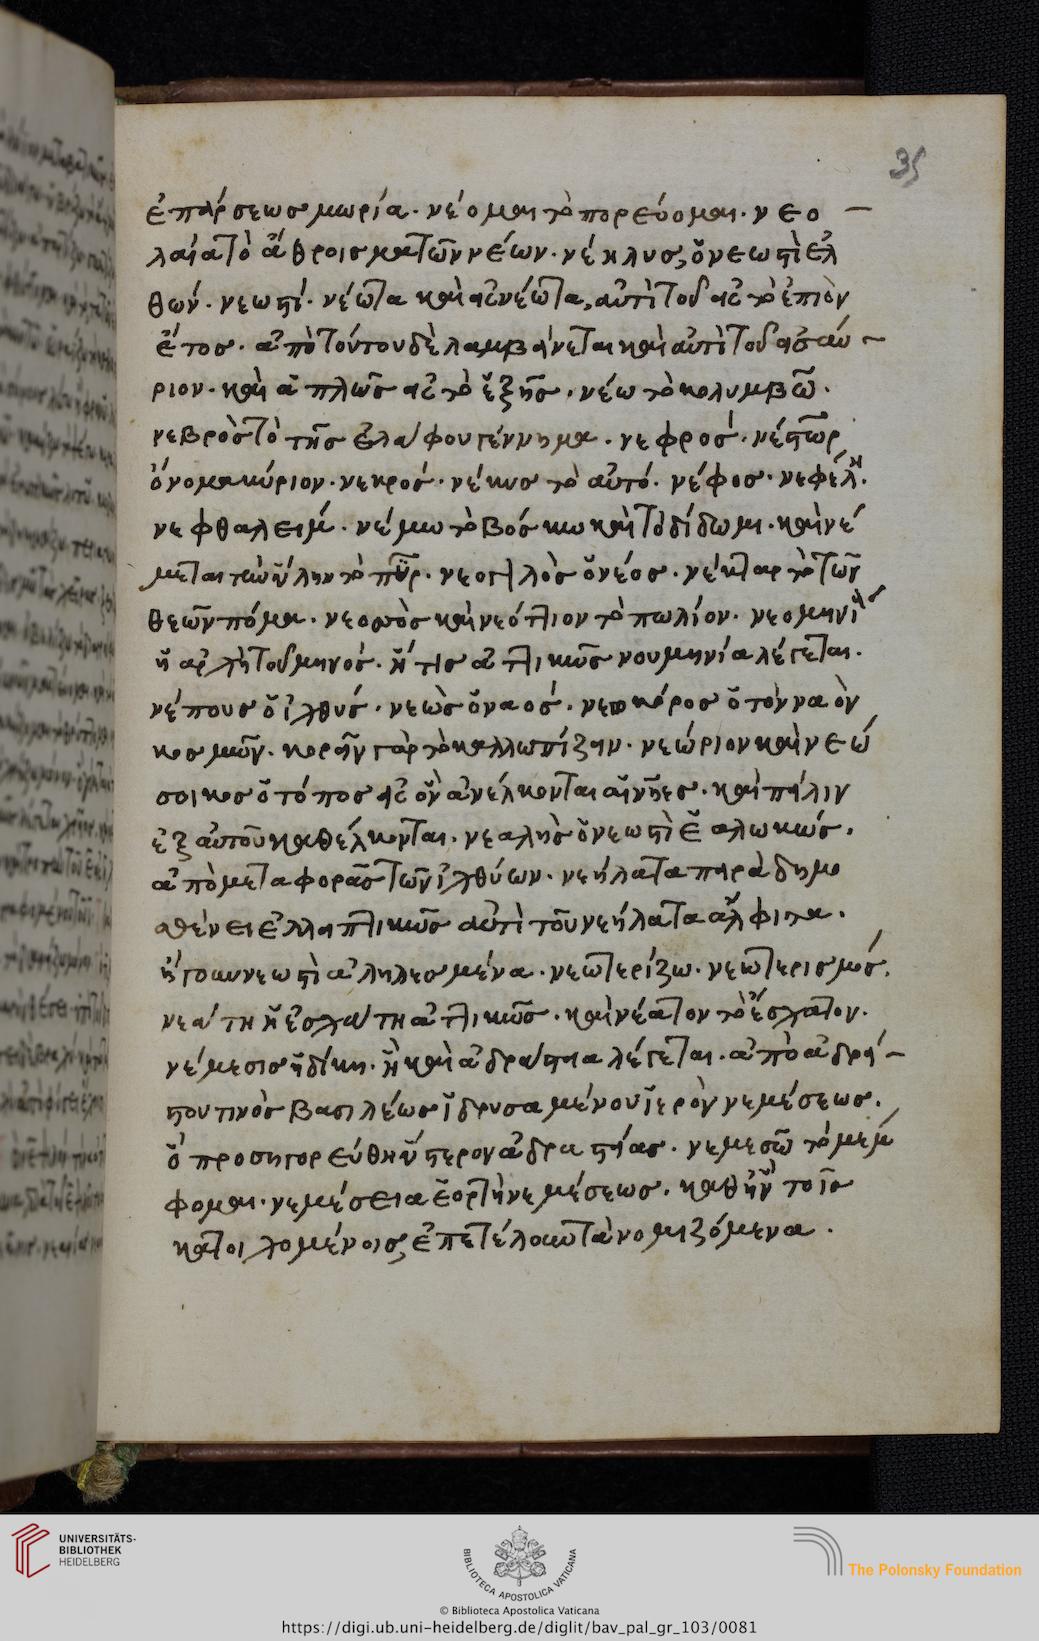 35
ἐπάρσεως μωρία. νέομαι τὸ πορεύομαι. νεο
λαία τὸ ἄθροισμα τῶν νέων. νέηλυς, ὁ νεωστὶ ἐλ
θών. νεωστί. νέωτα καὶ εἰς νέωτα, ἀντὶ τοῦ εἰς τὸ ἐπιὸν
ἔτος. ἀπὸ τούτου δὲ λαμβάνεται καὶ ἀντὶ τοῦ εἰς αύ
ριον. καὶ ἁπλῶς εἰς τὸ ἑξῆς. νέω τὸ κολυμβῶ.
νεβρὸς τὸ τῆς ἐλάφου γέννημα. νεφρός. νέστωρ
ὄνομα κύριον. νεκρός. νέκυς τὸ αὐτό. νέφος. νεφέλη.
νεφθαλείμ. νέμω τὸ βόσκω καὶ τὸ δίδωμι. καὶ νέ
μεται τὴν ὕλην τὸ πῦρ. νεογιλὸς ὁ νέος. νέκταρ τὸ τῶν
θεῶν πόμα. νεοσσὸς καὶ νεόττιον τὸ πωλίον. νεομηνία
ἡ ἀρχὴ τοῦ μηνός. ἥτις ἀττικῶς νουμηνία λέγεται.
νέπους ὁ ἰχθύς. νεὼς ὁ ναός. νεωκόρος ὁ τὸν ναὸν
κοσμῶν. κορεῖν γὰρ τὸ καλλωπίζειν. νεώριον καὶ νεώ
σοικος ὁ τόπος εἰς ὃν ἀνέλκονται αἱ νῆες. καὶ πάλιν
ἐξ αὐτοῦ καθέλκονται. νεαλὴς ὁ νεωστὶ ἑαλωκώς.
ἀπὸ μεταφορᾶς τῶν ἰχθύων. νεήλατα παρὰ δημο
σθένει ἐλλειπτικῶς ἀντὶ τοῦ νεήλατα ἄλφιτα.
ἤγουν νεωστὶ ἀληλεσμένα. νεωτερίζω. νεωτερισμός.
νεάτη ἡ ἐσχάτη ἀττικῶς. καὶ νέατον τὸ ἔσχατον.
νέμεσις ἡ δίκη. ἣ καὶ ἀδράστεια λέγεται. ἀπὸ ἀδρά
στου τινὸς βασιλέως ἱδρυσαμένου ἱερὸν νεμέσεως.
ὃ προσηγορεύθη ὕστερον ἀδραστείας. νεμεσῶ τὸ μέμ
φομαι. νεμέσεια ἑορτὴ νεμέσεως. καθ' ἣν τοῖς
κατοιχομένοις ἐπετέλουν τὰ νομιζόμενα.
UNIVERSITÄTS-
BIBLIOTHEK
HEIDELBERG
BIBLIOTECA APOSTOLICA VATICANA
The Polonsky Foundation
© Biblioteca Apostolica Vaticana
https://digi.ub.uni-heidelberg.de/diglit/bav_pal_gr_103/0081